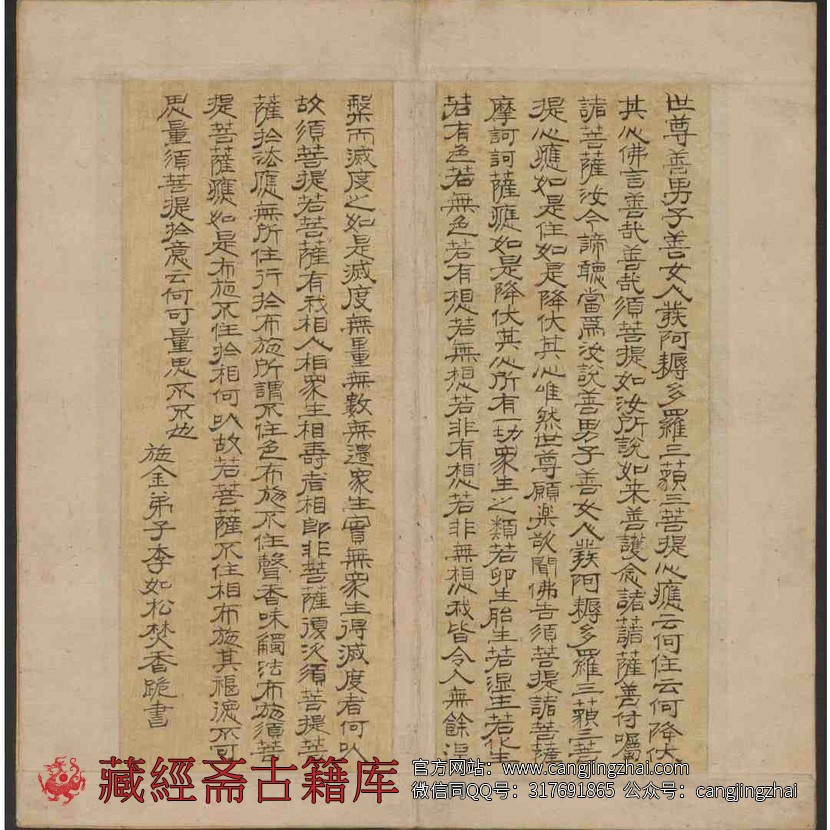 世尊善男子善女人發阿耨多羅三藐三菩提心應云何住云何降伏
其心佛言善哉善哉須菩提如汝所說如来善護念諸菩薩善付囑
諸菩薩汝今諦聽當為汝說善男子善女人發阿耨多羅三藐三菩
提心應如是住如是降伏其心唯然世尊願樂欲聞佛告須菩提諸菩薩
摩訶訶薩應如是降伏其心所有一切衆生之類若卵生胎生若湿生若化生
若有色若無色若有想若無想若非有想若非無想我皆令入無餘涅
槃而滅度之如是滅度無量無數無邊衆生實無衆生得滅度者何以
故須菩提若菩薩有我相人相衆生相壽者相即非菩薩復次須菩提菩
薩於法應無所住行於布施所謂不住色布施不住聲香味觸法布施須菩
提菩薩應如是布施不住於相何以故若菩薩不住相布施其福德不可
思量須菩提於意云何可量思不不也
施金弟子李如松焚香跪書
藏經斋古籍库
官方网站：www.cangjingzhai.com
微信同QQ号：317691865 公众号：cangjingzhai